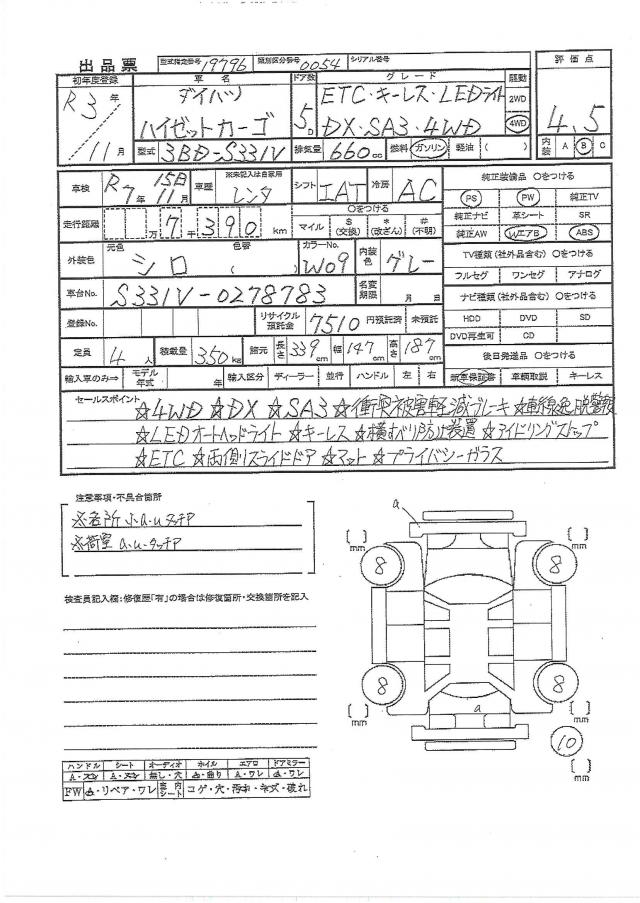 出品票 型式指定番号 19796 類別区分番号 0054 シリアル番号
初年度登録 車名 ドア数 グレード 駆動 評価点
R3年 ダイハツ 5D ETC・キーレス・LEDライト 2WD
11月 ハイゼットカーゴ DX・SA3・4WD 4WD 4.5
型式 3BD-S331V 排気量 660cc 燃料 ガソリン 軽油 ( ) 内装 A B C
車検 R7年 15日 11月 車歴 ※未記入は自家用 レンタ シフト IAT 冷房 AC 純正装備品 ○をつける
PS PW 純正TV
走行距離 万 7千 390 km ○をつける マイル $(交換) *(改ざん) #(不明) 純正ナビ 革シート SR
純正AW WエアB ABS
外装色 元色 シロ 色替 ( ) カラーNo. W09 内装色 グレー TV種類(社外品含む) ○をつける
フルセグ ワンセグ アナログ
車台No. S331V-0278783 名変期限 月 日 ナビ種類(社外品含む) ○をつける
登録No. リサイクル預託金 7510 円預託済 未預託 HDD DVD SD
DVD再生可 CD
定員 4人 積載量 350kg 諸元 長さ 339cm 幅 147cm 高さ 187cm 後日発送品 ○をつける
輸入車のみ⇒ モデル年式 年 輸入区分 ディーラー 並行 ハンドル 左 右 新車保証書 車輌取説 キーレス
セールスポイント ☆4WD ☆DX ☆SA3 ☆衝突被害軽減ブレーキ ☆車線逸脱警報
☆LEDオートヘッドライト ☆キーレス ☆横すべり防止装置 ☆アイドリングストップ
☆ETC ☆両側スライドドア ☆マット ☆プライバシーガラス
注意事項・不具合箇所
※各所 小a.u.タッチP
※荷室 a.u.タッチP
検査員記入欄:修復歴「有」の場合は修復箇所・交換箇所を記入
a
[ ] mm 8 8 [ ] mm
[ ] mm 8 8 [ ] mm
a
10
[ ] mm
ハンドル シート オーディオ ホイル エアロ ドアミラー
A・スレ A・スレ 無し・穴 A・曲り A・ワレ A・ワレ
FW A・リペア・ワレ 室内シート コゲ・穴・汚れ・キズ・破れ